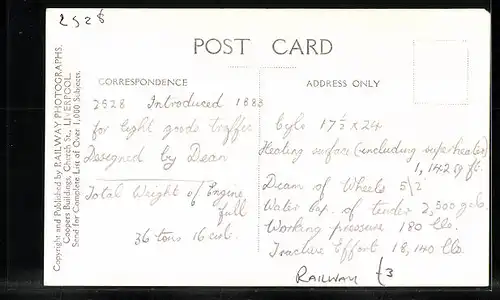 2528
POST CARD
CORRESPONDENCE
ADDRESS ONLY
Copyright and Published by RAILWAY PHOTOGRAPHS,
Coopers Buildings, Church St., LIVERPOOL.
Send for Complete List of Over 1,000 Subjects.
2528 Introduced 1883
for light goods traffic
Designed by Dean
Total Weight of Engine
full
36 tons 16 cwt.
Cyls 17½ x 24
Heating surface (including superheater)
1,142.59 ft.
Diam of Wheels 5/2
Water Cap. of tender 2,500 gals.
Working pressure 180 lbs.
Tractive Effort 18,140 lbs.
RAILWAY £3